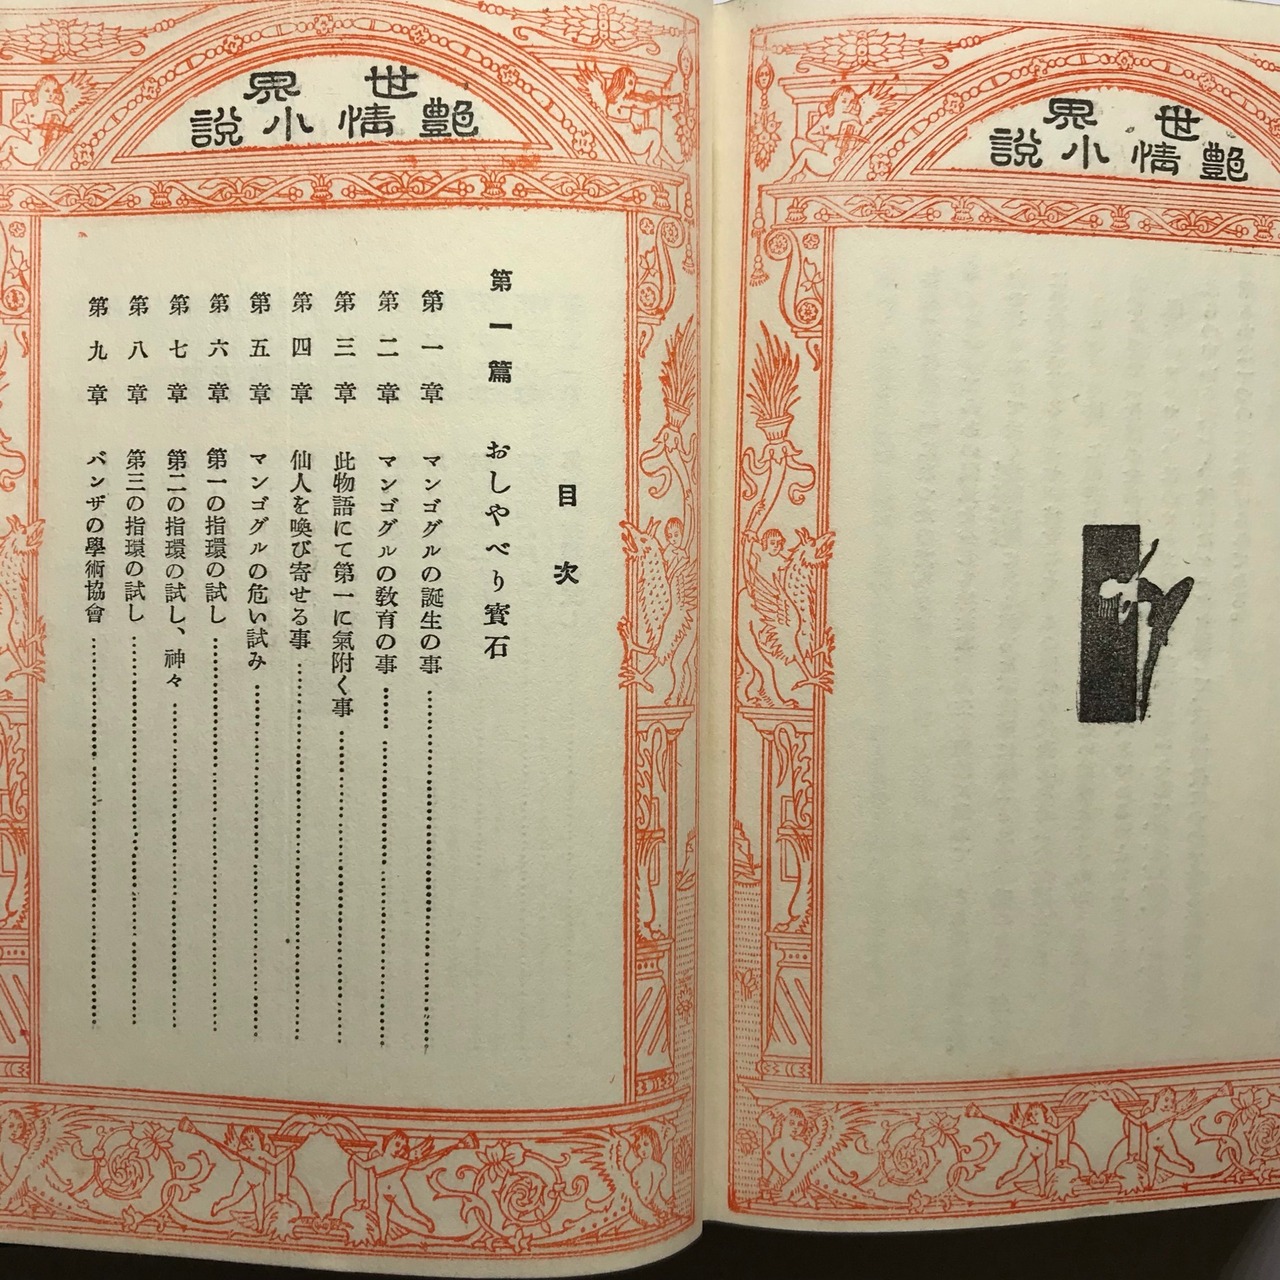 世界
艶情小説
世界
艶情小説
目次
第一篇 おしやべり寳石
第一章 マンゴグルの誕生の事
第二章 マンゴグルの敎育の事
第三章 此物語にて第一に氣附く事
第四章 仙人を喚び寄せる事
第五章 マンゴグルの危い試み
第六章 第一の指環の試し
第七章 第二の指環の試し、神々
第八章 第三の指環の試し
第九章 バンザの學術協會